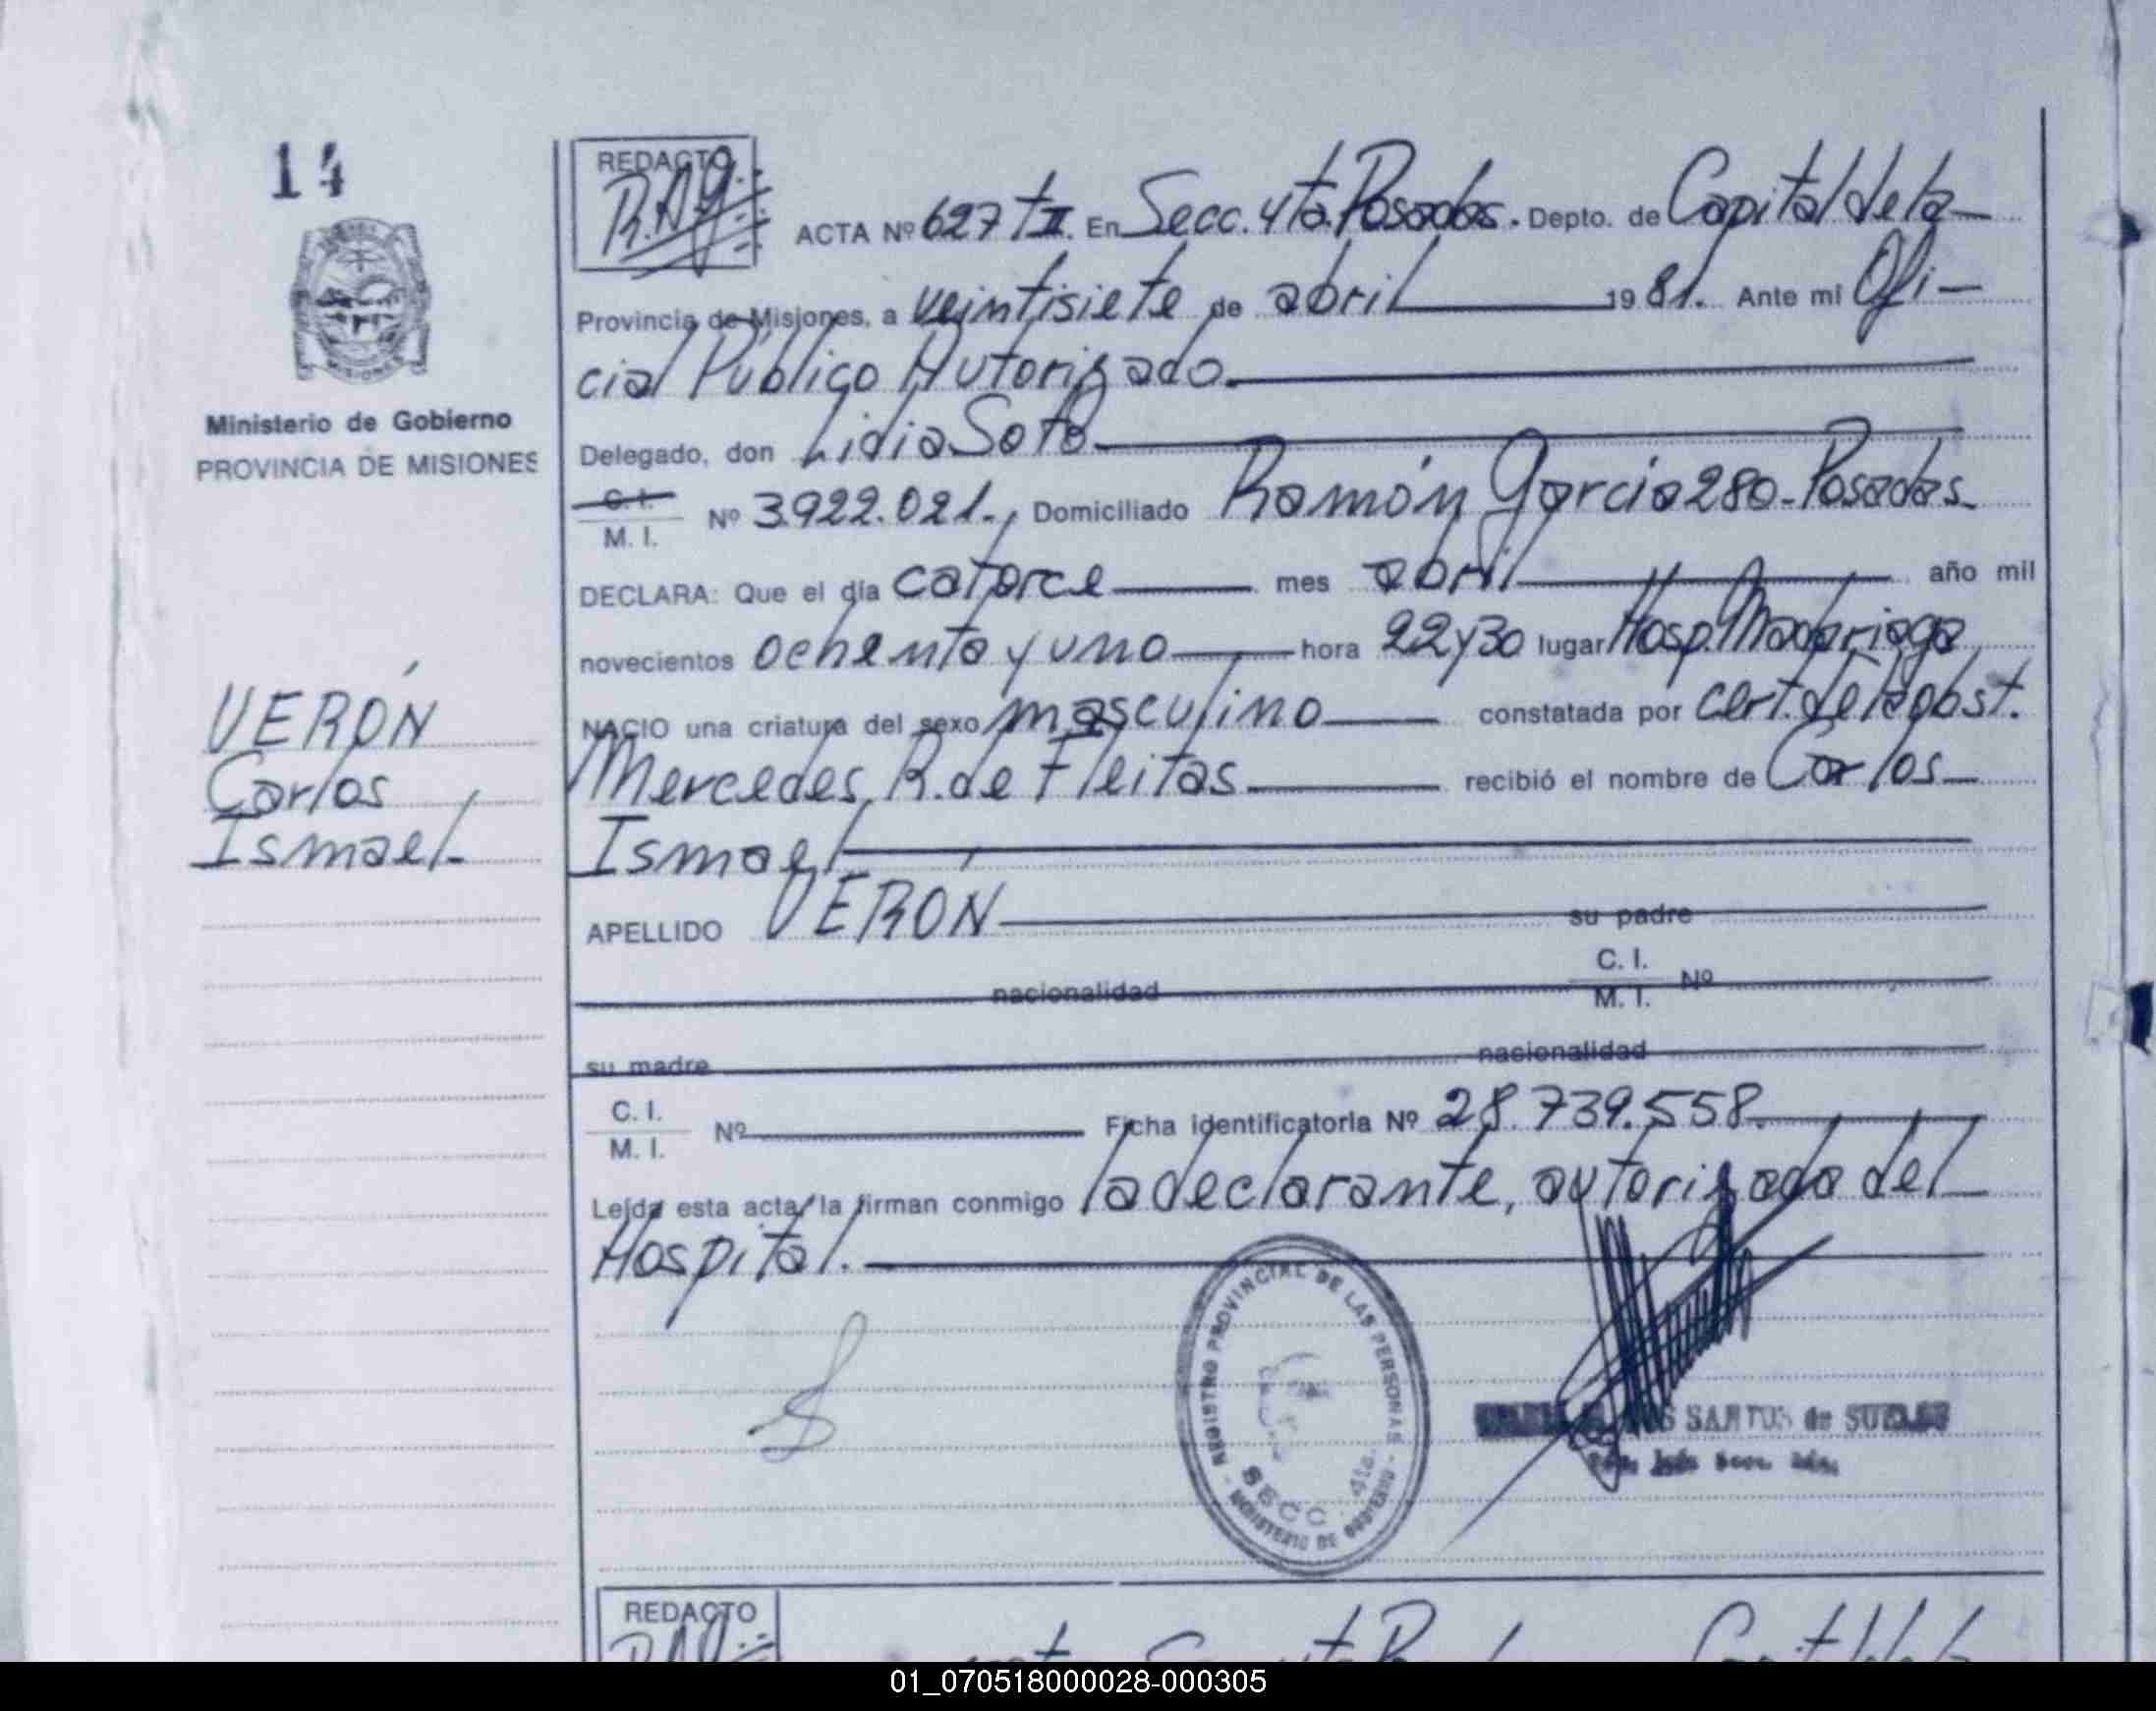 14
MISIONES
Ministerio de Gobierno
PROVINCIA DE MISIONES
VERÓN
Carlos
Ismael.
REDACTO
ACTA Nº 627 TII. En Secc. 4ta. Posadas. Depto. de Capital de la
Provincia de Misiones, a veintisiete de abril 1981. Ante mi Ofi-
cial Público Autorizado.
Delegado, don Lidia Soto
C. I.
M. I. Nº 3.922.021., Domiciliado Ramón Garcia 280-Posadas.
DECLARA: Que el día catorce mes abril año mil
novecientos ochenta y uno hora 22y30 lugar Hosp. Madariaga
NACIO una criatura del sexo masculino constatada por cert. de la obst.
Mercedes R. de Fleitas recibió el nombre de Carlos
Ismael
APELLIDO VERÓN su padre
nacionalidad C. I. M. I. Nº
su madre nacionalidad
C. I.
M. I. Nº Ficha identificatoria Nº 28.739.558.
Leída esta acta, la firman conmigo la declarante, autorizada del
Hospital.
REGISTRO PROVINCIAL DE LAS PERSONAS
SECC. 4ta.
MINISTERIO DE GOBIERNO
SANTOS de
REDACTO
01_070518000028-000305